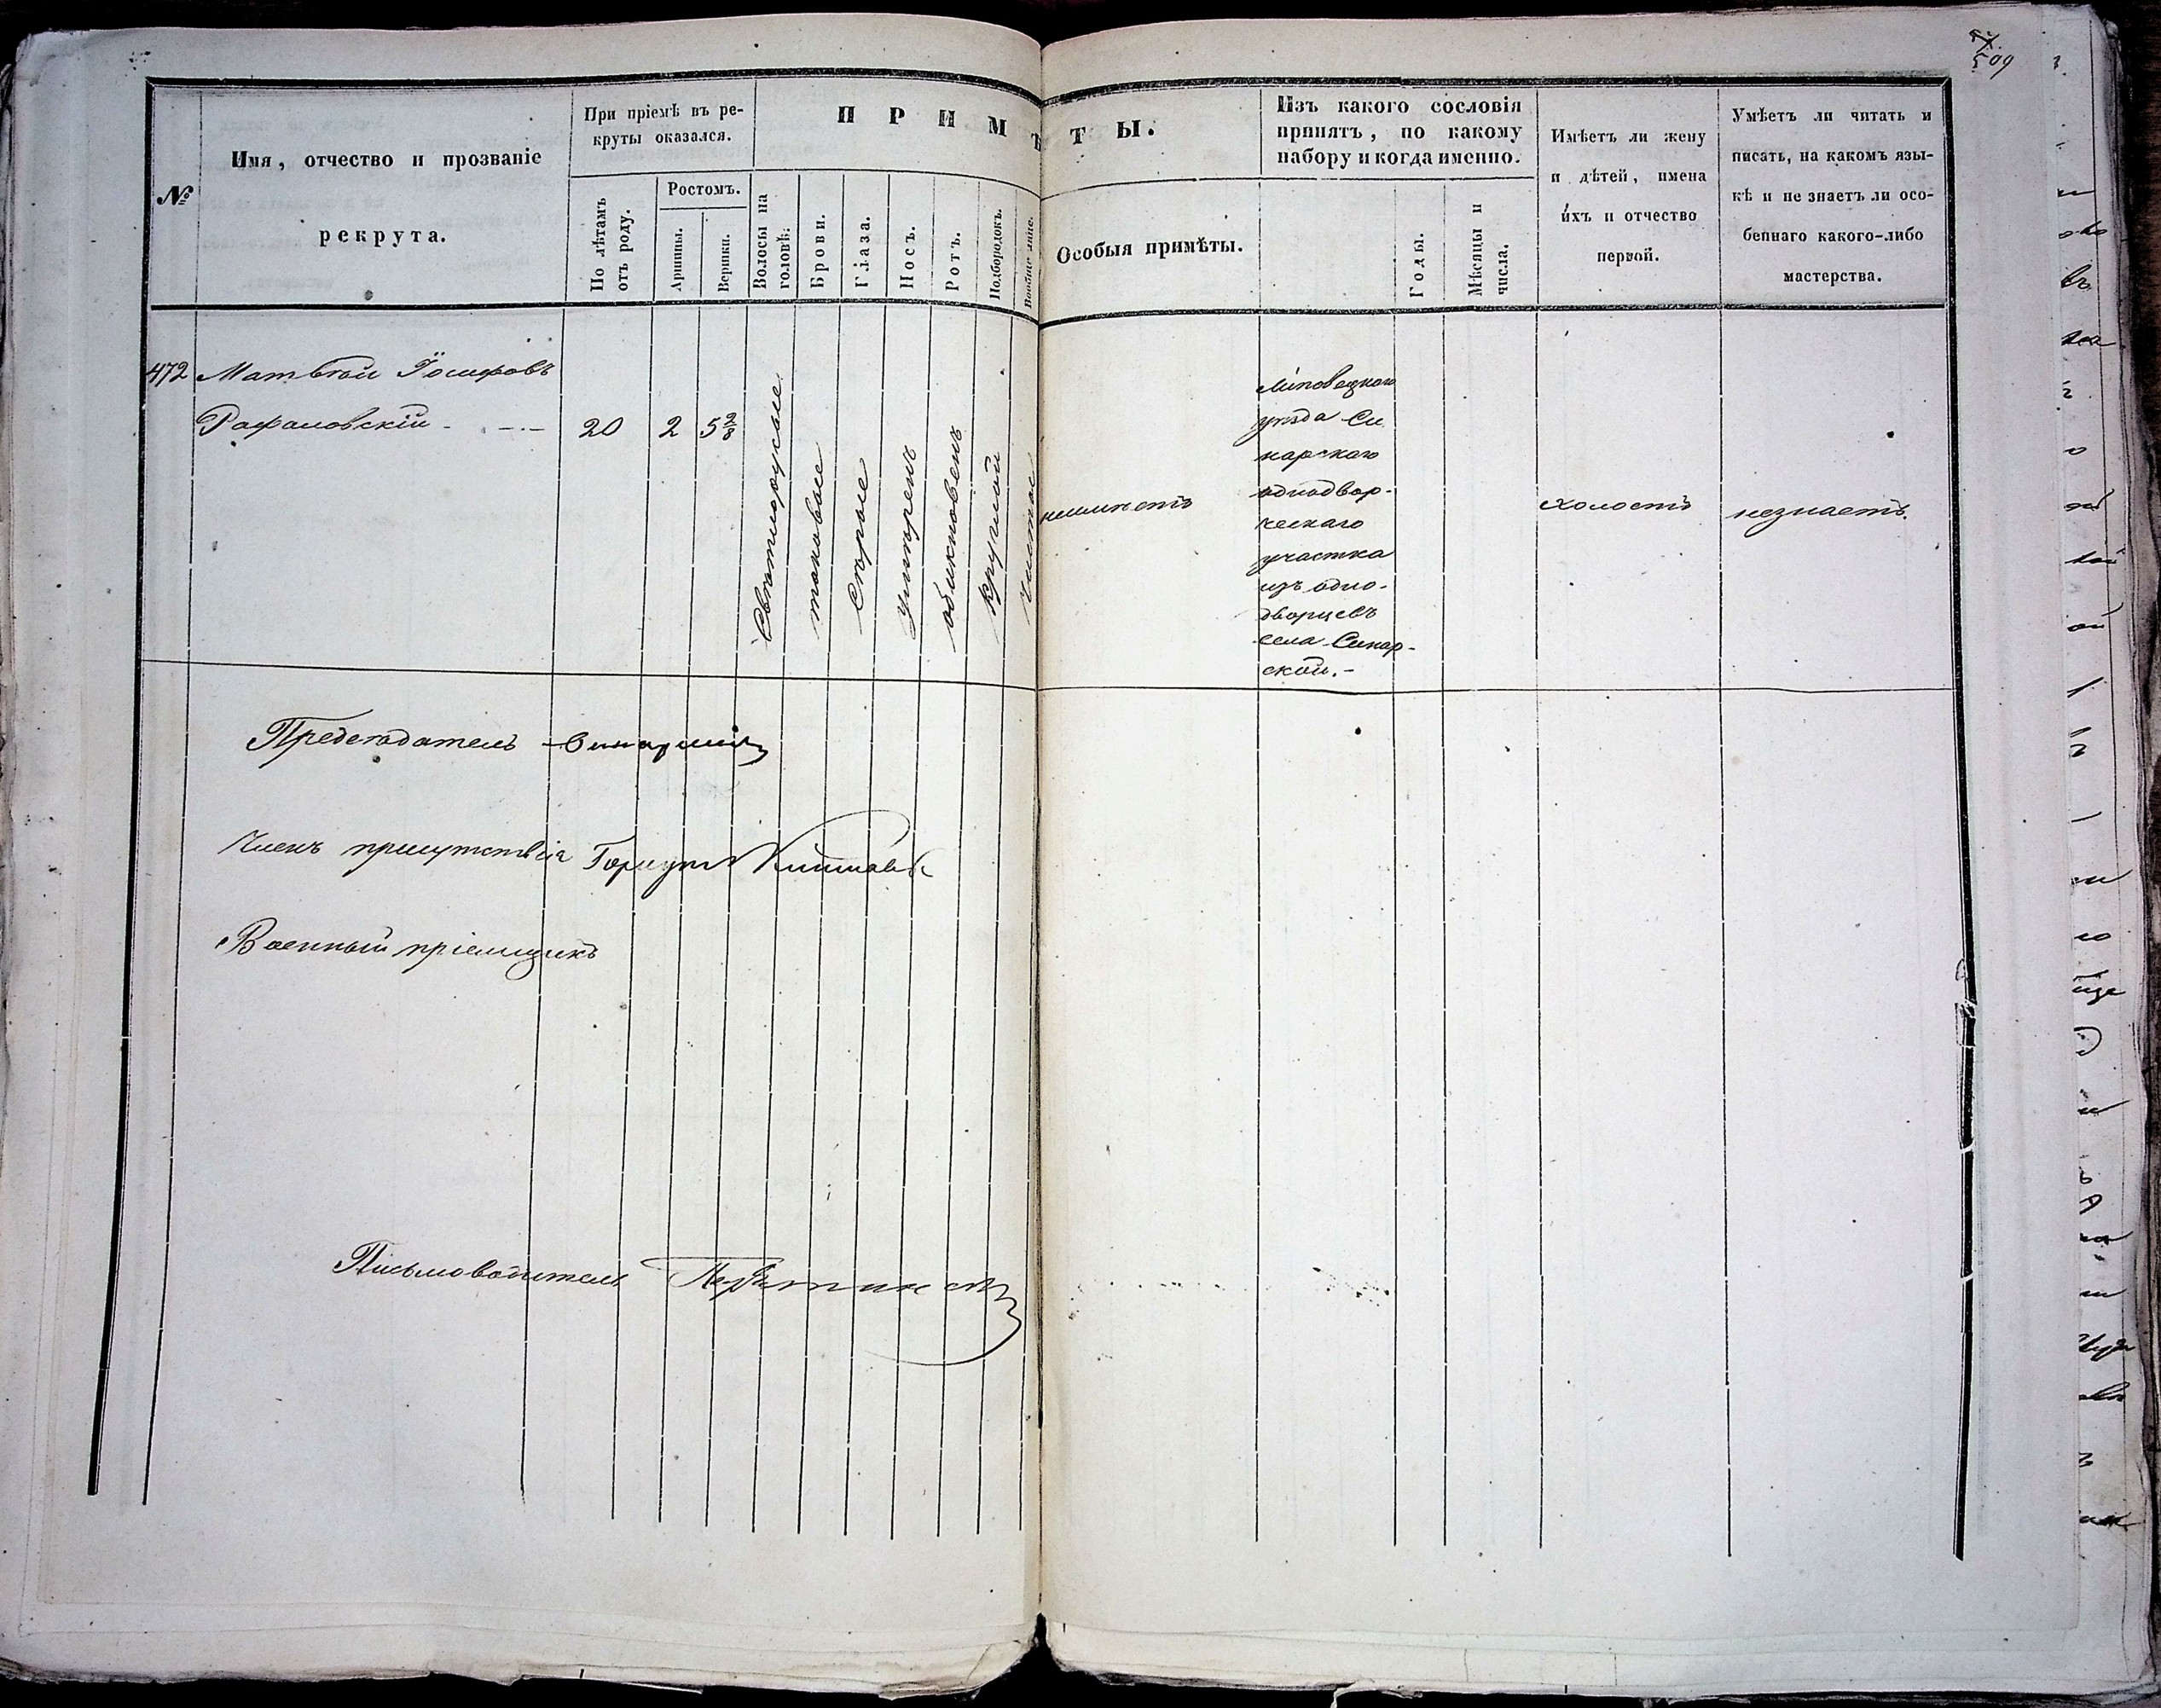 509
№
Имя, отчество и прозваніе
рекрута.
При пріемѣ въ ре-
круты оказался.
По лѣтамъ
отъ роду.
Ростомъ.
Аршины.
Вершки.
ПРИМѢТЫ.
Волосы на
головѣ.
Брови.
Глаза.
Носъ.
Ротъ.
Подбородокъ.
Вообще лице.
Особыя примѣты.
Изъ какого сословія
принятъ, по какому
набору и когда именно.
Годы.
Мѣсяцы и
числа.
Имѣетъ ли жену
и дѣтей, имена
ихъ и отчество
первой.
Умѣетъ ли читать и
писать, на какомъ язы-
кѣ и не знаетъ ли осо-
беннаго какого-либо
мастерства.
472
Матвѣй Іосифовъ
Рафаловскій
20
2
5 2/8
Свѣтлорусые
таковые
Сѣрые
умѣренъ
обикновенъ
круглой
чистое
неимѣетъ
Липовецкаго
уѣзда Си
нарскаго
однодвор-
ческаго
участка
изъ одно-
дворцевъ
села Синар-
ской.-
холостъ
незнаетъ.
Председатель
Членъ присутствія
Военный пріемщикъ
Письмоводитель